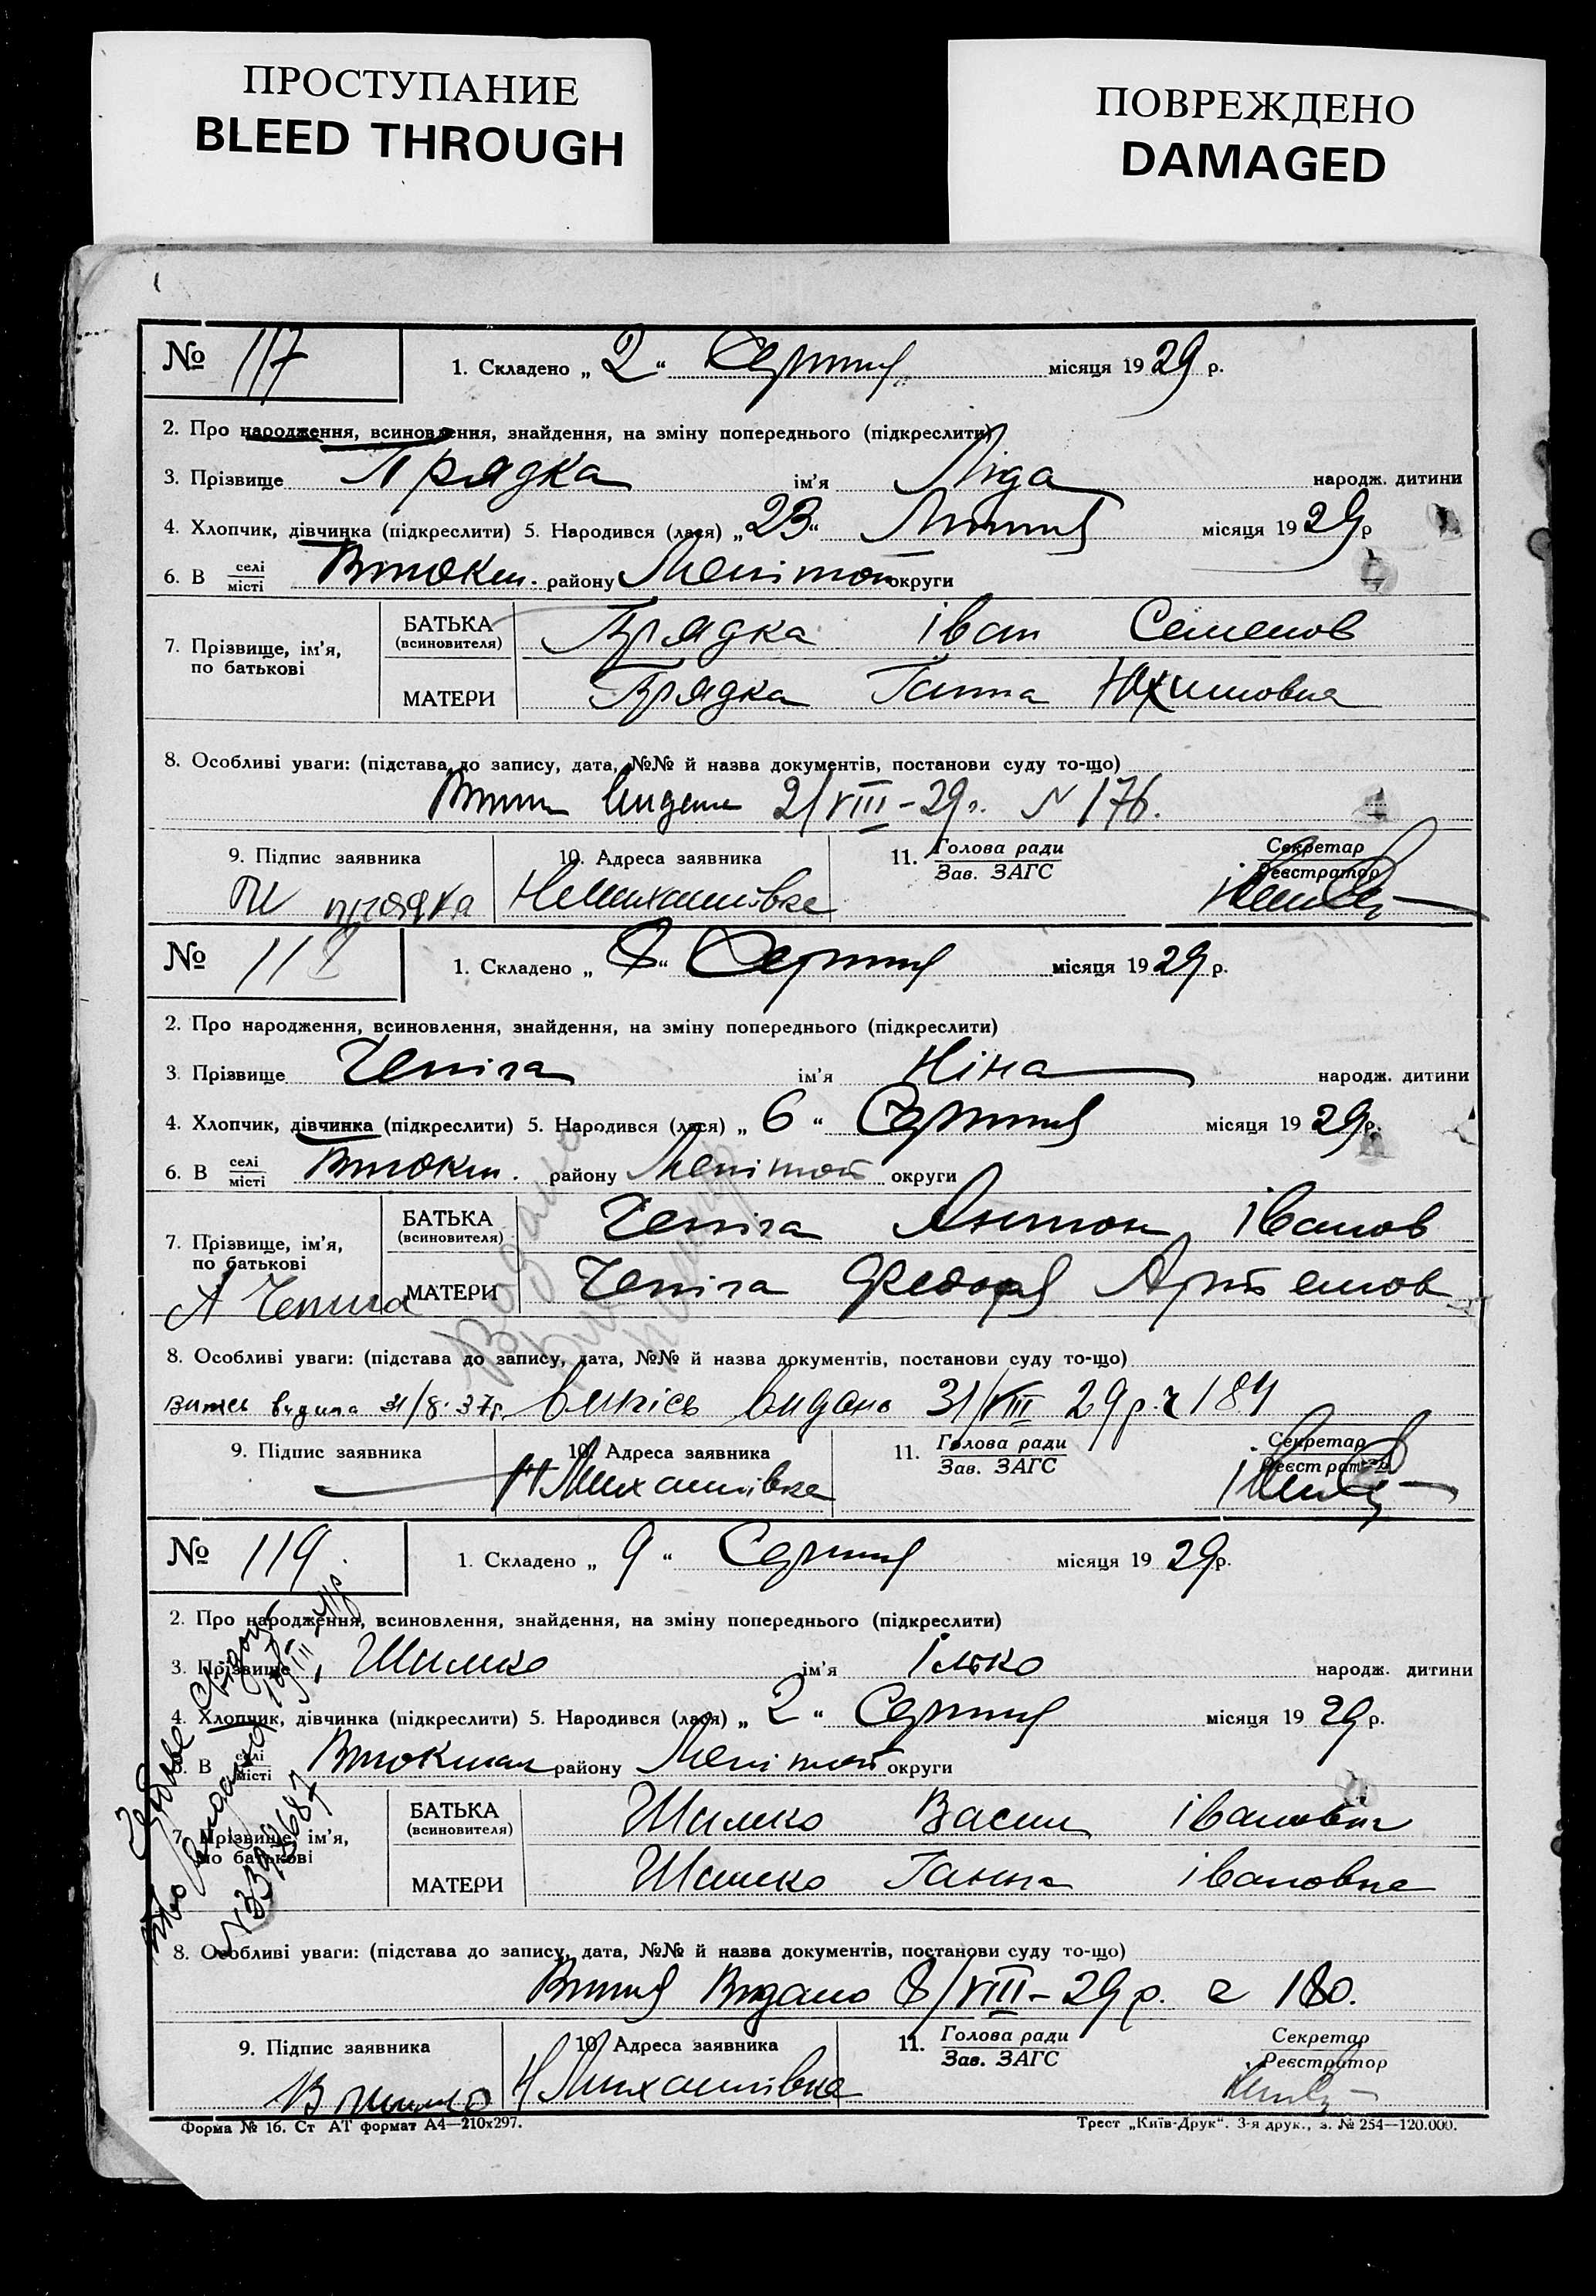 ПРОСТУПАНИЕ
BLEED THROUGH
ПОВРЕЖДЕНО
DAMAGED
№ 117 1. Складено „ 2 “ Серпня місяця 19 29 р.
2. Про народження, всиновлення, знайдення, на зміну попереднього (підкреслити)
3. Прізвище Прядка ім'я Ліда народж. дитини
4. Хлопчик, дівчинка (підкреслити) 5. Народився (лася) „ 23 “ Липня місяця 19 29 р
6. В селі місті району Меліт округи
7. Прізвище, ім'я, по батькові
БАТЬКА (всиновителя) Прядка Іван Семенов
МАТЕРИ Прядка Ганна Юхимовна
8. Особливі уваги: (підстава до запису, дата, №№ й назва документів, постанови суду то-що)
21/VIII-29р. N 176.
9. Підпис заявника 10. Адреса заявника 11. Голова ради Зав. ЗАГС Секретар Реєстратор
прядка Н Михайлівка
№ 118 1. Складено „ 8 “ Серпня місяця 19 29 р.
2. Про народження, всиновлення, знайдення, на зміну попереднього (підкреслити)
3. Прізвище Чепіга ім'я Ніна народж. дитини
4. Хлопчик, дівчинка (підкреслити) 5. Народився (лася) „ 6 “ Серпня місяця 19 29 р.
6. В селі місті району Меліт округи
7. Прізвище, ім'я, по батькові
БАТЬКА (всиновителя) Чепіга Антон Іванов
МАТЕРИ Чепіга Федора Артемов
А Чепига
8. Особливі уваги: (підстава до запису, дата, №№ й назва документів, постанови суду то-що)
31/8. 37р. випісь видано 31/VIII 29р. ч 184
9. Підпис заявника 10. Адреса заявника 11. Голова ради Зав. ЗАГС Секретар Реєстратор
Н Михайлівка
№ 119. 1. Складено „ 9 “ Серпня місяця 19 29 р.
2. Про народження, всиновлення, знайдення, на зміну попереднього (підкреслити)
3. Прізвище Шишко ім'я Ілько народж. дитини
4. Хлопчик, дівчинка (підкреслити) 5. Народився (лася) „ 2 “ Серпня місяця 19 29 р.
6. В селі місті району Меліт округи
7. Прізвище, ім'я, по батькові
БАТЬКА (всиновителя) Шишко Васил Іванович
МАТЕРИ Шишко Ганна Івановна
8. Особливі уваги: (підстава до запису, дата, №№ й назва документів, постанови суду то-що)
Видано 8/VIII-29р. ч 180.
9. Підпис заявника 10. Адреса заявника 11. Голова ради Зав. ЗАГС Секретар Реєстратор
Н Михайлівка
Форма № 16. Ст АТ формат А4—210х297.
Трест „Київ-Друк“. 3-я друк., з. № 254—120.000.